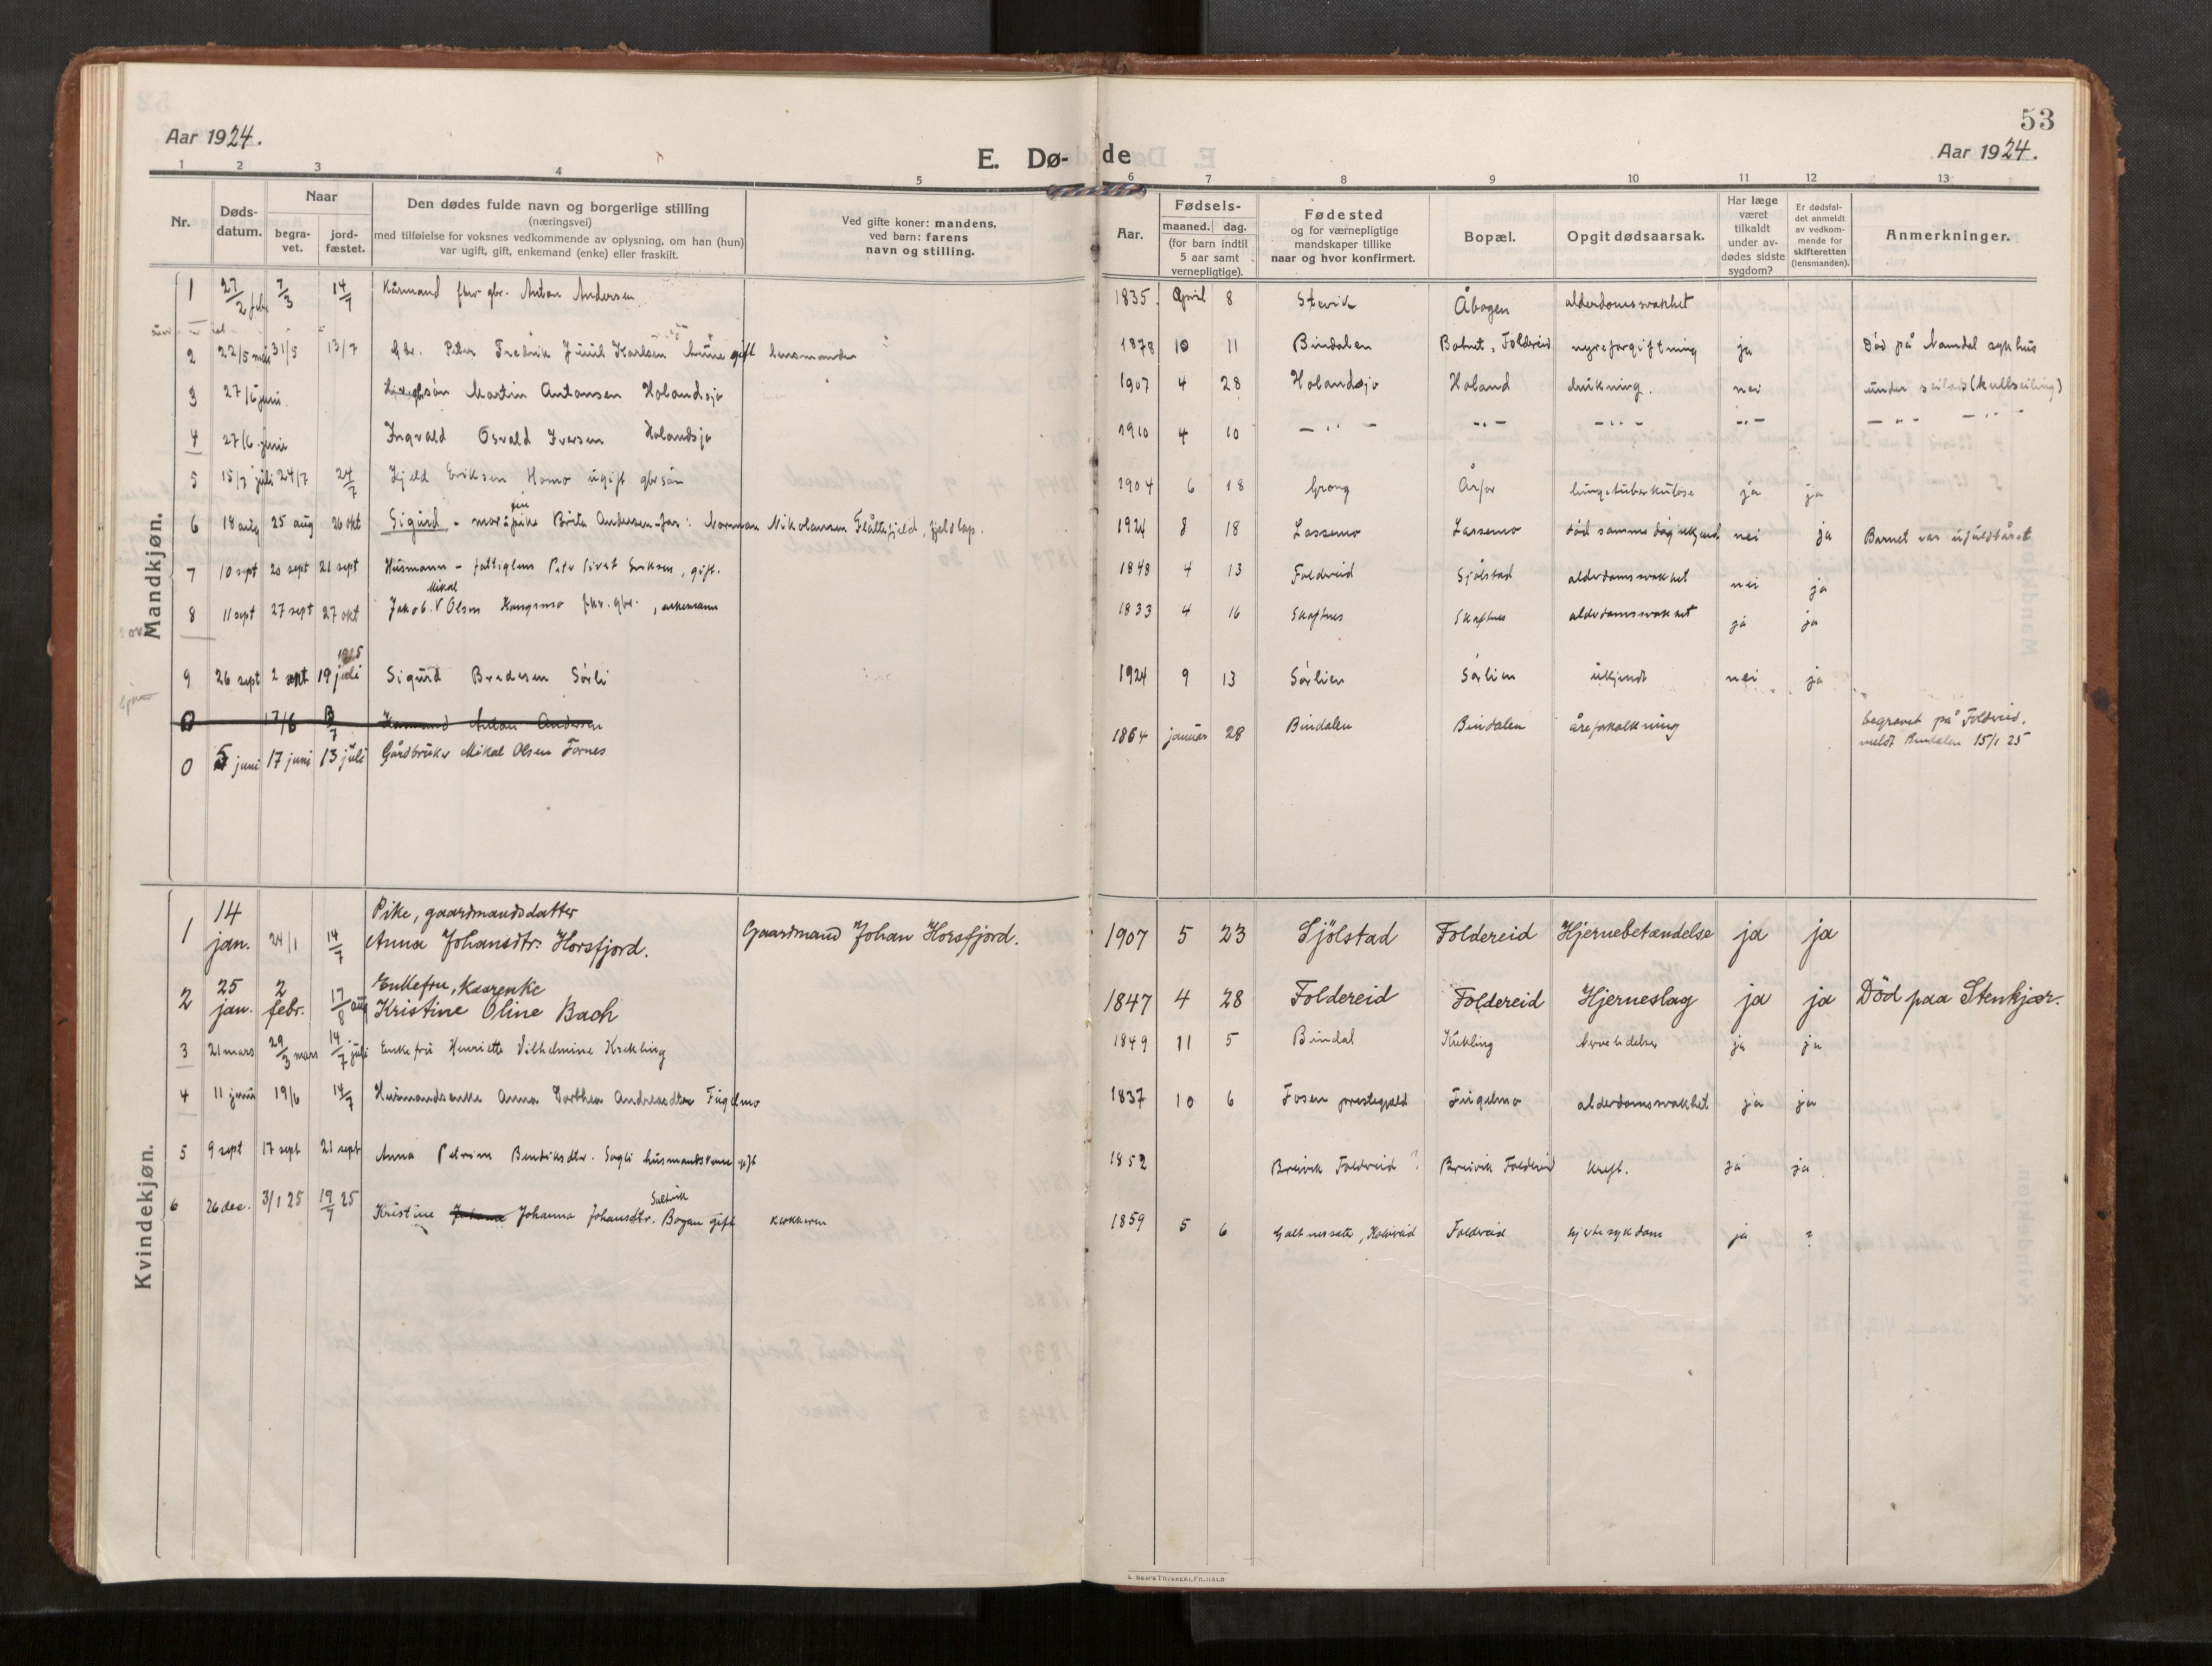 53
Aar 1924.
E. Dø-
de
Aar 1924.
1 2 3 4 5 6 7 8 9 10 11 12 13
Nr.
Døds-
datum.
Naar
begra-
vet.
jord-
fæstet.
Den dødes fulde navn og borgerlige stilling
(næringsvei)
med tilføielse for voksnes vedkommende av oplysning, om han (hun)
var ugift, gift, enkemand (enke) eller fraskilt.
Ved gifte koner: mandens,
ved barn: farens
navn og stilling.
Aar.
Fødsels-
maaned. dag.
(for barn indtil
5 aar samt
vernepligtige).
Fødested
og for værnepligtige
mandskaper tillike
naar og hvor konfirmert.
Bopæl.
Opgit dødsaarsak.
Har læge
været
tilkaldt
under av-
dødes sidste
sygdom?
Er dødsfal-
det anmeldt
av vedkom-
mende for
skifteretten
(lensmanden).
Anmerkninger.
Mandkjøn.
1 27/2 feb 7/3 14/7 Kårmand fhv gbr. Anton Andersen 1835. April 8 Åbogen alderdomssvakhet
2 22/5 mai 31/5 13/7 Gbr. Peter Fredrik Juul Karlsen gift 1878 10 11 Bindalen Botnet, Foldereid nyreforgiftning ja Død på Namdal sykhus
3 27/6 juni Martin Antonsen Holandsjø 1907 4 28 Holandsjø Holand drukning. nei under seilas (kullseiling)
4 27/6 juni Ingvald Osvald Iversen Holandsjø 1910 4 10 — " — - " - - " - - " - — " — — " —
5 15/7 juli 24/7 24/7 Kjeld Eriksen Homo ugift gbrsøn 1904 6 18 Grong Årfor lungetuberkulose ja ja
6 18 aug 25 aug 26 okt Sigurd - mor: pike Brita Andersen - far: Norman Nikolaisen Flåttefjeld, fjeldlap. 1924 8 18 Lassemo Lassemo død samme dag ukjend nei ja Barnet var ufuldbåret
7 10 sept 20 sept 21 sept Husmann - fattiglem Peter Sivert Eriksen, gift. 1848 4 13 Foldereid Sjølstad alderdomssvakhet nei ja
8 11 sept 27 sept 27 okt Jakob Mikal Olsen Kongsmo fhv. gbr., enkemann 1833 4 16 Skaftnes Skaftnes alderdomssvakhet ja ja
1925
9 26 sept 2 okt 19 juli Sigurd Bredesen Sørli 1924 9 13 Sørlien Sørlien ukjendt nei ja
0 17/6 13/7 Anton Andersen
0 5 juni 17 juni 13 juli Gårdbruker Mikal Olsen Fornes 1864 januar 28 Bindalen Bindalen åreforkalkning begravet på Foldereid,
meldt Bindalen 15/1 25
Kvindekjøn.
Pike, gaardmandsdatter
1 14 jan. 24/1 14/7 Anna Johansdtr. Horsfjord. Gaardmand Johan Horsfjord. 1907 5 23 Sjölstad Foldereid Hjernebetændelse ja ja
Enkefru, Kaarenke
2 25 jan. 2 febr. 17/8 aug Kristine Oline Bach 1847 4 28 Foldereid Foldereid Hjerneslag ja ja Död paa Stenkjær.
3 21 mars 29/3 mars 14/7 juli Enkefru Henriette Vilhelmine Krekling 1849 11 5 Bindal Krekling Nervelidelse ja ja
4 11 juni 19/6 14/7 Husmandsenke Anna Dorthea Andreasdtr Fugelmo 1837 10 6 Fosen prestegjeld Fugelmo alderdomssvakhet ja ja
5 9 sept 17 sept 21 sept Anna Petrine Bendiksdtr. husmandskone gift 1852 Breivik Foldereid ? Breivik Foldereid kreft. ja ja
6 26 dec. 3/1 25 19/7 25 Kristine Johanna Johansdtr. Bogan gift 1859 5 6 Foldereid hjertesykdom ja ?